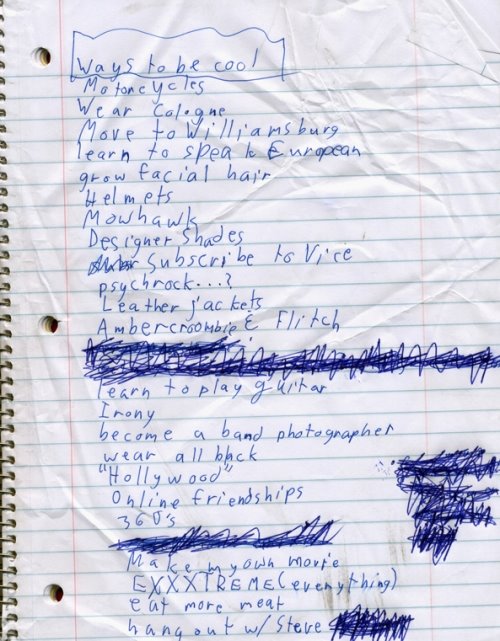 Ways to be cool
Motorcycles
Wear Cologne
Move to Williamsburg
learn to speak European
grow facial hair
Helmets
Mowhawk
Designer Shades
Subscribe to Vice
psychrock...?
Leather jackets
Ambercroombie & Flitch
learn to play guitar
Irony
become a band photographer
wear all black
"Hollywood"
Online friendships
360's
Make my own movie
EXXXTREME (everything)
eat more meat
hang out w/ Steve